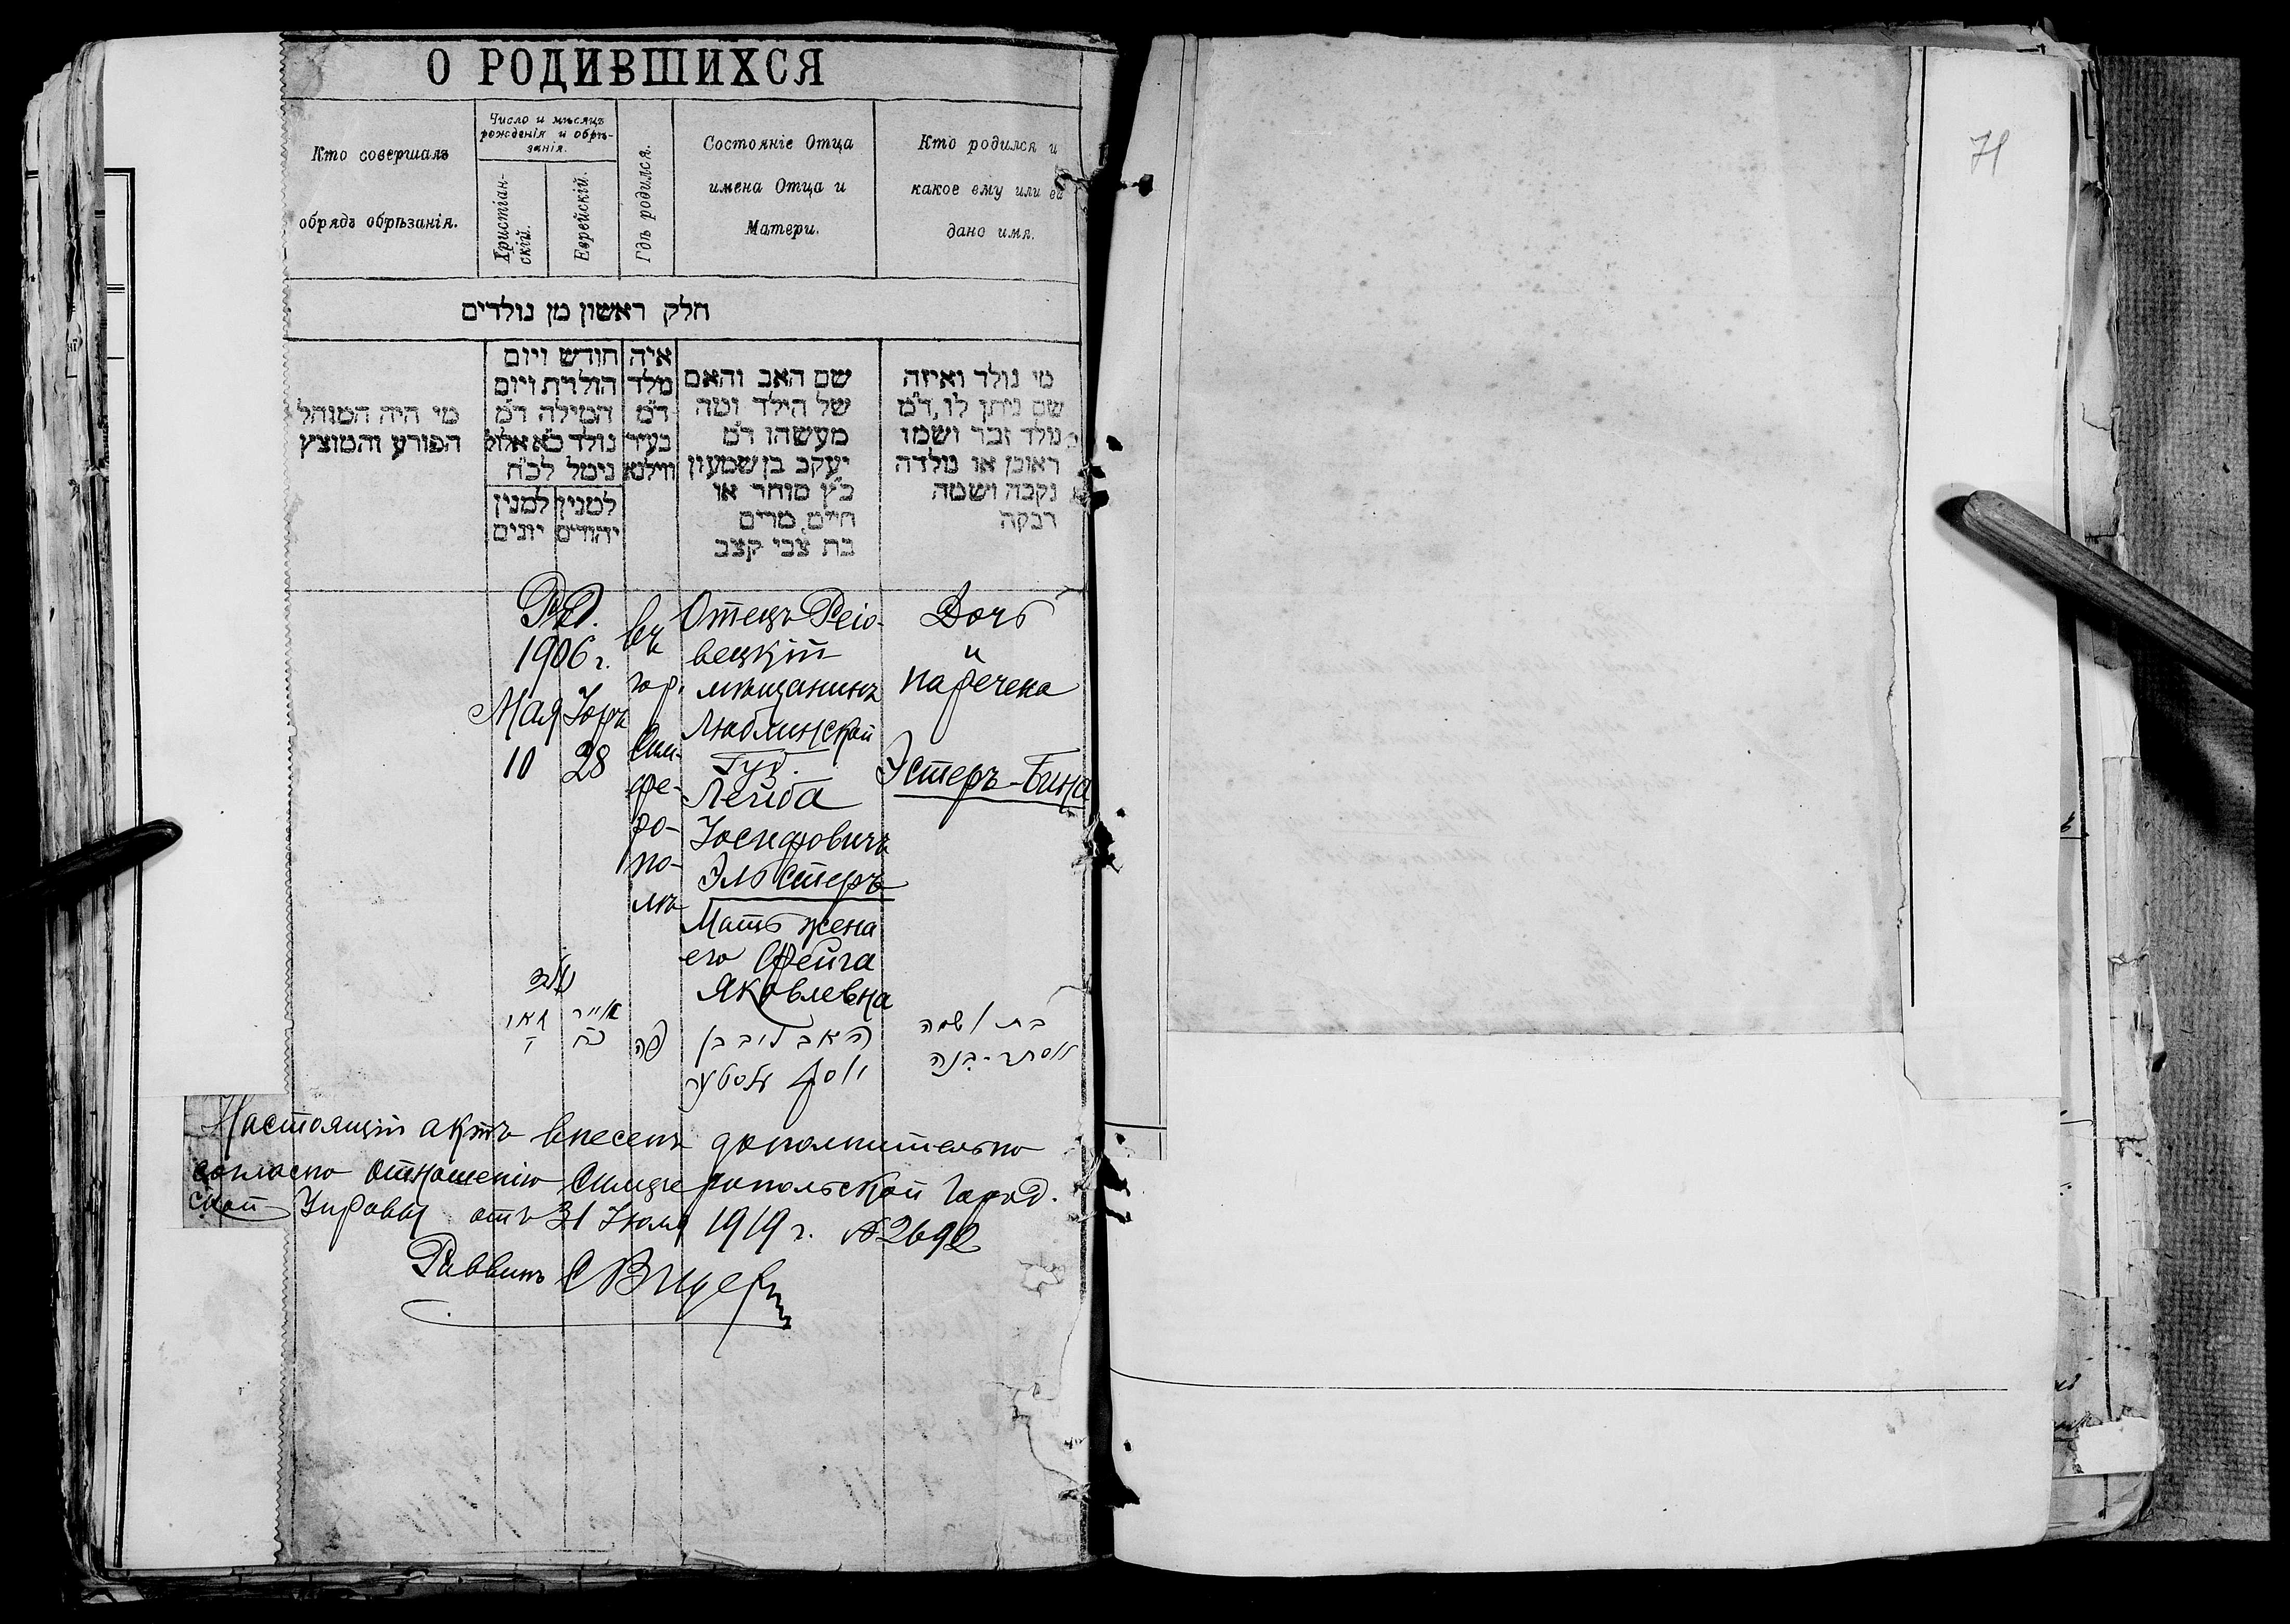 О РОДИВШИХСЯ
Кто совершалъ
обрядъ обрѣзанія.
Число и мѣсяцъ
рожденія и обрѣ-
занія.
Христіан-
скій.
Еврейскій.
Гдѣ родился.
Состояніе Отца
имена Отца и
Матери.
Кто родился и
какое ему или ей
дано имя.
חלק ראשון מן נולדים
מי היה המוהל
הפורע והמוצץ
חודש ויום
הולדת ויום
המילה ד״מ
נולד כ״א אלול
נימל לכ״ח
למנין
יהודים
למנין
יונים
איה
מלד
ד״מ
בעיר
ווילנא
שם האב והאם
של הילד ומה
מעשהו ד״מ
יעקב בן שמעון
כ״ץ סוחר או
חיים, מרים
בת צבי קצב
מי נולד ואיזה
שם ניתן לו, ד״מ
נולד זכר ושמו
ראובן או נולדה
נקבה ושמה
רבקה
1906 г.
Мая
10
Іоръ
28
въ
гор.
Сим-
фе-
ро-
по-
лѣ
Отецъ Реіо-
вецкій
мѣщанинъ
Люблинской
Губ.
Лейба
Іосифовичъ
Эльстеръ
Мать жена
его Фейга
Яковлевна
Дочь
и
наречена
Эстеръ-Бина
מאי
י
אייר
כח
פה
האב ליב בן
יוסף עלסטער
בת ושמה
אסתר-בינה
Настоящій актъ внесенъ дополнительно
согласно отношенію Симферопольской Город.
ской Управы отъ 31 Іюля 1919 г. № 2692
Раввинъ
71